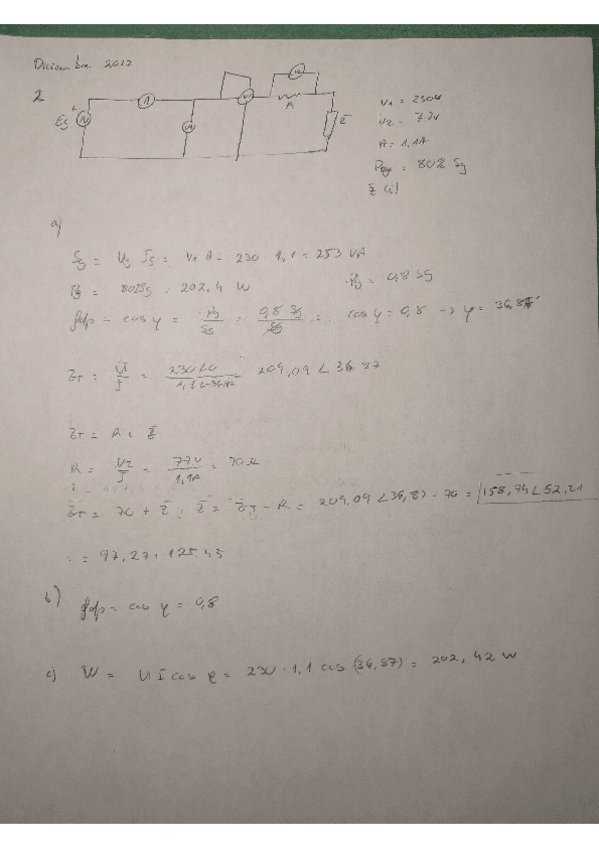 Diciembre 2017
2
Eg
A
Z
V1 = 230V
V2 = 77V
A = 1,1A
= 80% Sg
Z (i)
a)
Sg = Ug Ig = V1 A = 230 1,1 = 253 VA
Pg = 80%Sg = 202,4 W Pg = 0,8 Sg
gdfp = cos φ = Pg/Sg = 0,8 Sg/Sg = cos φ = 0,8 → φ = 36,87
ZT = U/I = 230∠0/1,1∠-36,87 209,09 ∠ 36,87
ZT = R + Z
R = V2/I = 77V/1,1A = 70 Ω
ZT = 70 + Z ; Z = ZT - R = 209,09 ∠36,87 - 70 = 158,74∠52,21
= 97,27 + 125,45
b) gdfp = cos φ = 0,8
c) W = U I cos φ = 230 · 1,1 cos (36,87) = 202,42 W